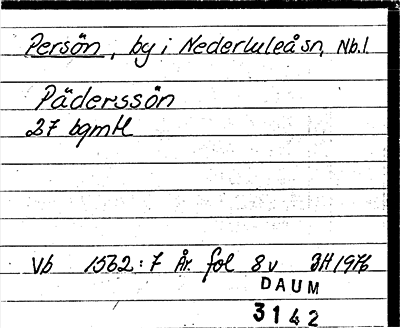 Persön, by i Nederluleå sn, Nb.l.
Päderssön
27 bgmtl
Vb 1562:7 År. fol 8 v JH 1976
DAUM
3142